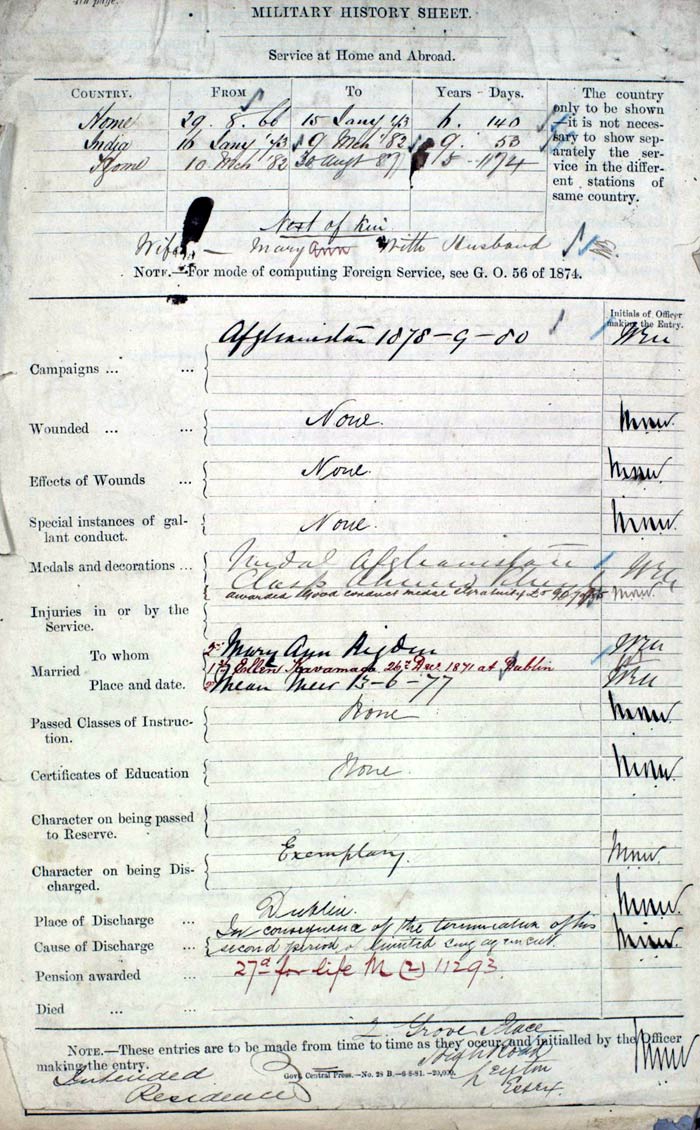 4th page.
MILITARY HISTORY SHEET.
Service at Home and Abroad.
COUNTRY. FROM To Years - Days. The country only to be shown —it is not necessary to show separately the service in the different stations of same country.
Home 29. 8. 66 15 Jany '73 6. 140
India 16 Jany '73 9 Mch '82 9. 53
Home 10 Mch '82 30 Augt 87 5 - 174
Next of Kin
Wife — Mary Ann With Husband
NOTE.—For mode of computing Foreign Service, see G. O. 56 of 1874.
Initials of Officer making the Entry.
Afghanistan 1878-9-80
Campaigns ... ...
Wounded ... ... None.
Effects of Wounds ... None.
Special instances of gallant conduct. None.
Medals and decorations ... Medal Afghanistan
Clasp
awarded Good conduct medal Gratuity £5
Injuries in or by the Service.
2nd Mary Ann Rigden
Married To whom 1st Ellen Kavanagh 26th Dec. 1871 at Dublin
Place and date. 2nd Mean Meer 13-6-77
Passed Classes of Instruction. None
Certificates of Education None.
Character on being passed to Reserve.
Character on being Discharged. Exemplary.
Place of Discharge ... Dublin.
Cause of Discharge ... In consequence of the termination of his
second period of limited engagement.
Pension awarded 27d for life M (2) 11293
Died ... ...
2 Grove Place
NOTE.—These entries are to be made from time to time as they occur, and initialled by the Officer
making the entry. High Road
Govt. Central Press.—No. 28 B.—6-8-81.—20,000.
Leyton
Essex.
Intended
Residence